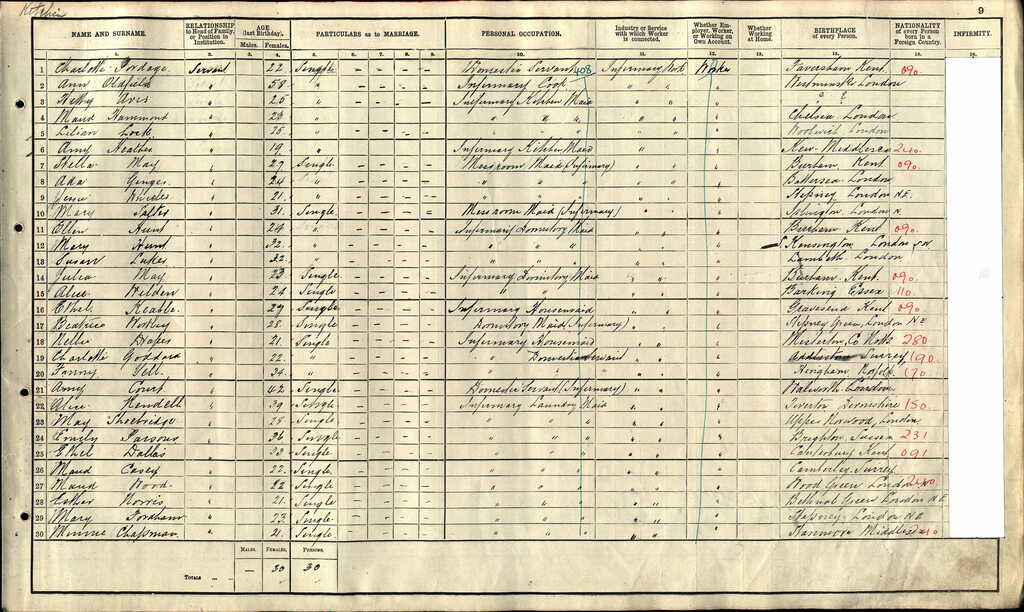 9
NAME AND SURNAME.
RELATIONSHIP to Head of Family, or Position in Institution.
AGE (last Birthday).
Males. Females.
PARTICULARS as to MARRIAGE.
PERSONAL OCCUPATION.
Industry or Service with which Worker is connected.
Whether Employer, Worker, or Working on Own Account.
Whether Working at Home.
BIRTHPLACE of every Person.
NATIONALITY of every Person born in a Foreign Country.
INFIRMITY.
1 Charlotte Servant 22 Single Domestic Servant 408 Infirmary Work Worker Faversham Kent 090
2 Ann Oldfield " 58 " Infirmary Cook Westminster London
3 Avis " 25 " Infirmary Kitchen Maid
4 Maud Hammond " 24 " " " " Chelsea London
5 Lilian Lock " 25 " " " " Woolwich London
6 Amy Heather " 19 " Infirmary Kitchen Maid Kew Middlesex 240
7 Stella May " 27 Single Messroom Maid (Infirmary) Burham Kent 090
8 Ada Ginger " 24 " " " " Battersea London
9 Jessie " 21 " " " " Stepney London N.E.
10 Mary Salter " 31 Single Messroom Maid (Infirmary) Islington London N
11 Ellen Hunt " 24 " Infirmary Dormitory Maid Burham Kent 090
12 Mary Hunt " 32 " " " " S. Kensington London S.W
13 Susan Lukes " 32 " " " " Lambeth London
14 Julia May " 23 Single Infirmary Dormitory Maid Burham Kent 090
15 Alice Wilden " 24 Single " " " Barking Essex 110
16 Ethel Keable " 27 Single Infirmary Housemaid Gravesend Kent 090
17 Beatrice " 28 Single Dormitory Maid (Infirmary) Stepney Green, London N.E
18 Nellie " 21 Single Infirmary Housemaid Co Notts 280
19 Charlotte Goddard " 22 " " Domestic Servant Surrey 190
20 Fanny Sell " 34 " " " Hingham Norfolk 170
21 Amy Court " 42 Single Domestic Servant (Infirmary) Walworth London
22 Alice Kendell " 39 Single Infirmary Laundry Maid Tiverton Devonshire 150
23 May Shoebridge " 28 Single " " " Upper Norwood, London
24 Emily Parsons " 36 Single " " " Brighton Sussex 231
25 Ethel Dallas " 33 Single " " " Canterbury Kent 091
26 Maud Casey " 22 Single " " " Camberley Surrey
27 Maud Wood " 22 Single " " " Wood Green London 240
28 Esther Norris " 21 Single " " " Bethnal Green London N.E
29 Mary Fordham " 23 Single " " " Stepney London N.E
30 Minnie Chapman " 21 Single " " " Middlesex 240
Males. Females. Persons.
Totals — — — 30 30